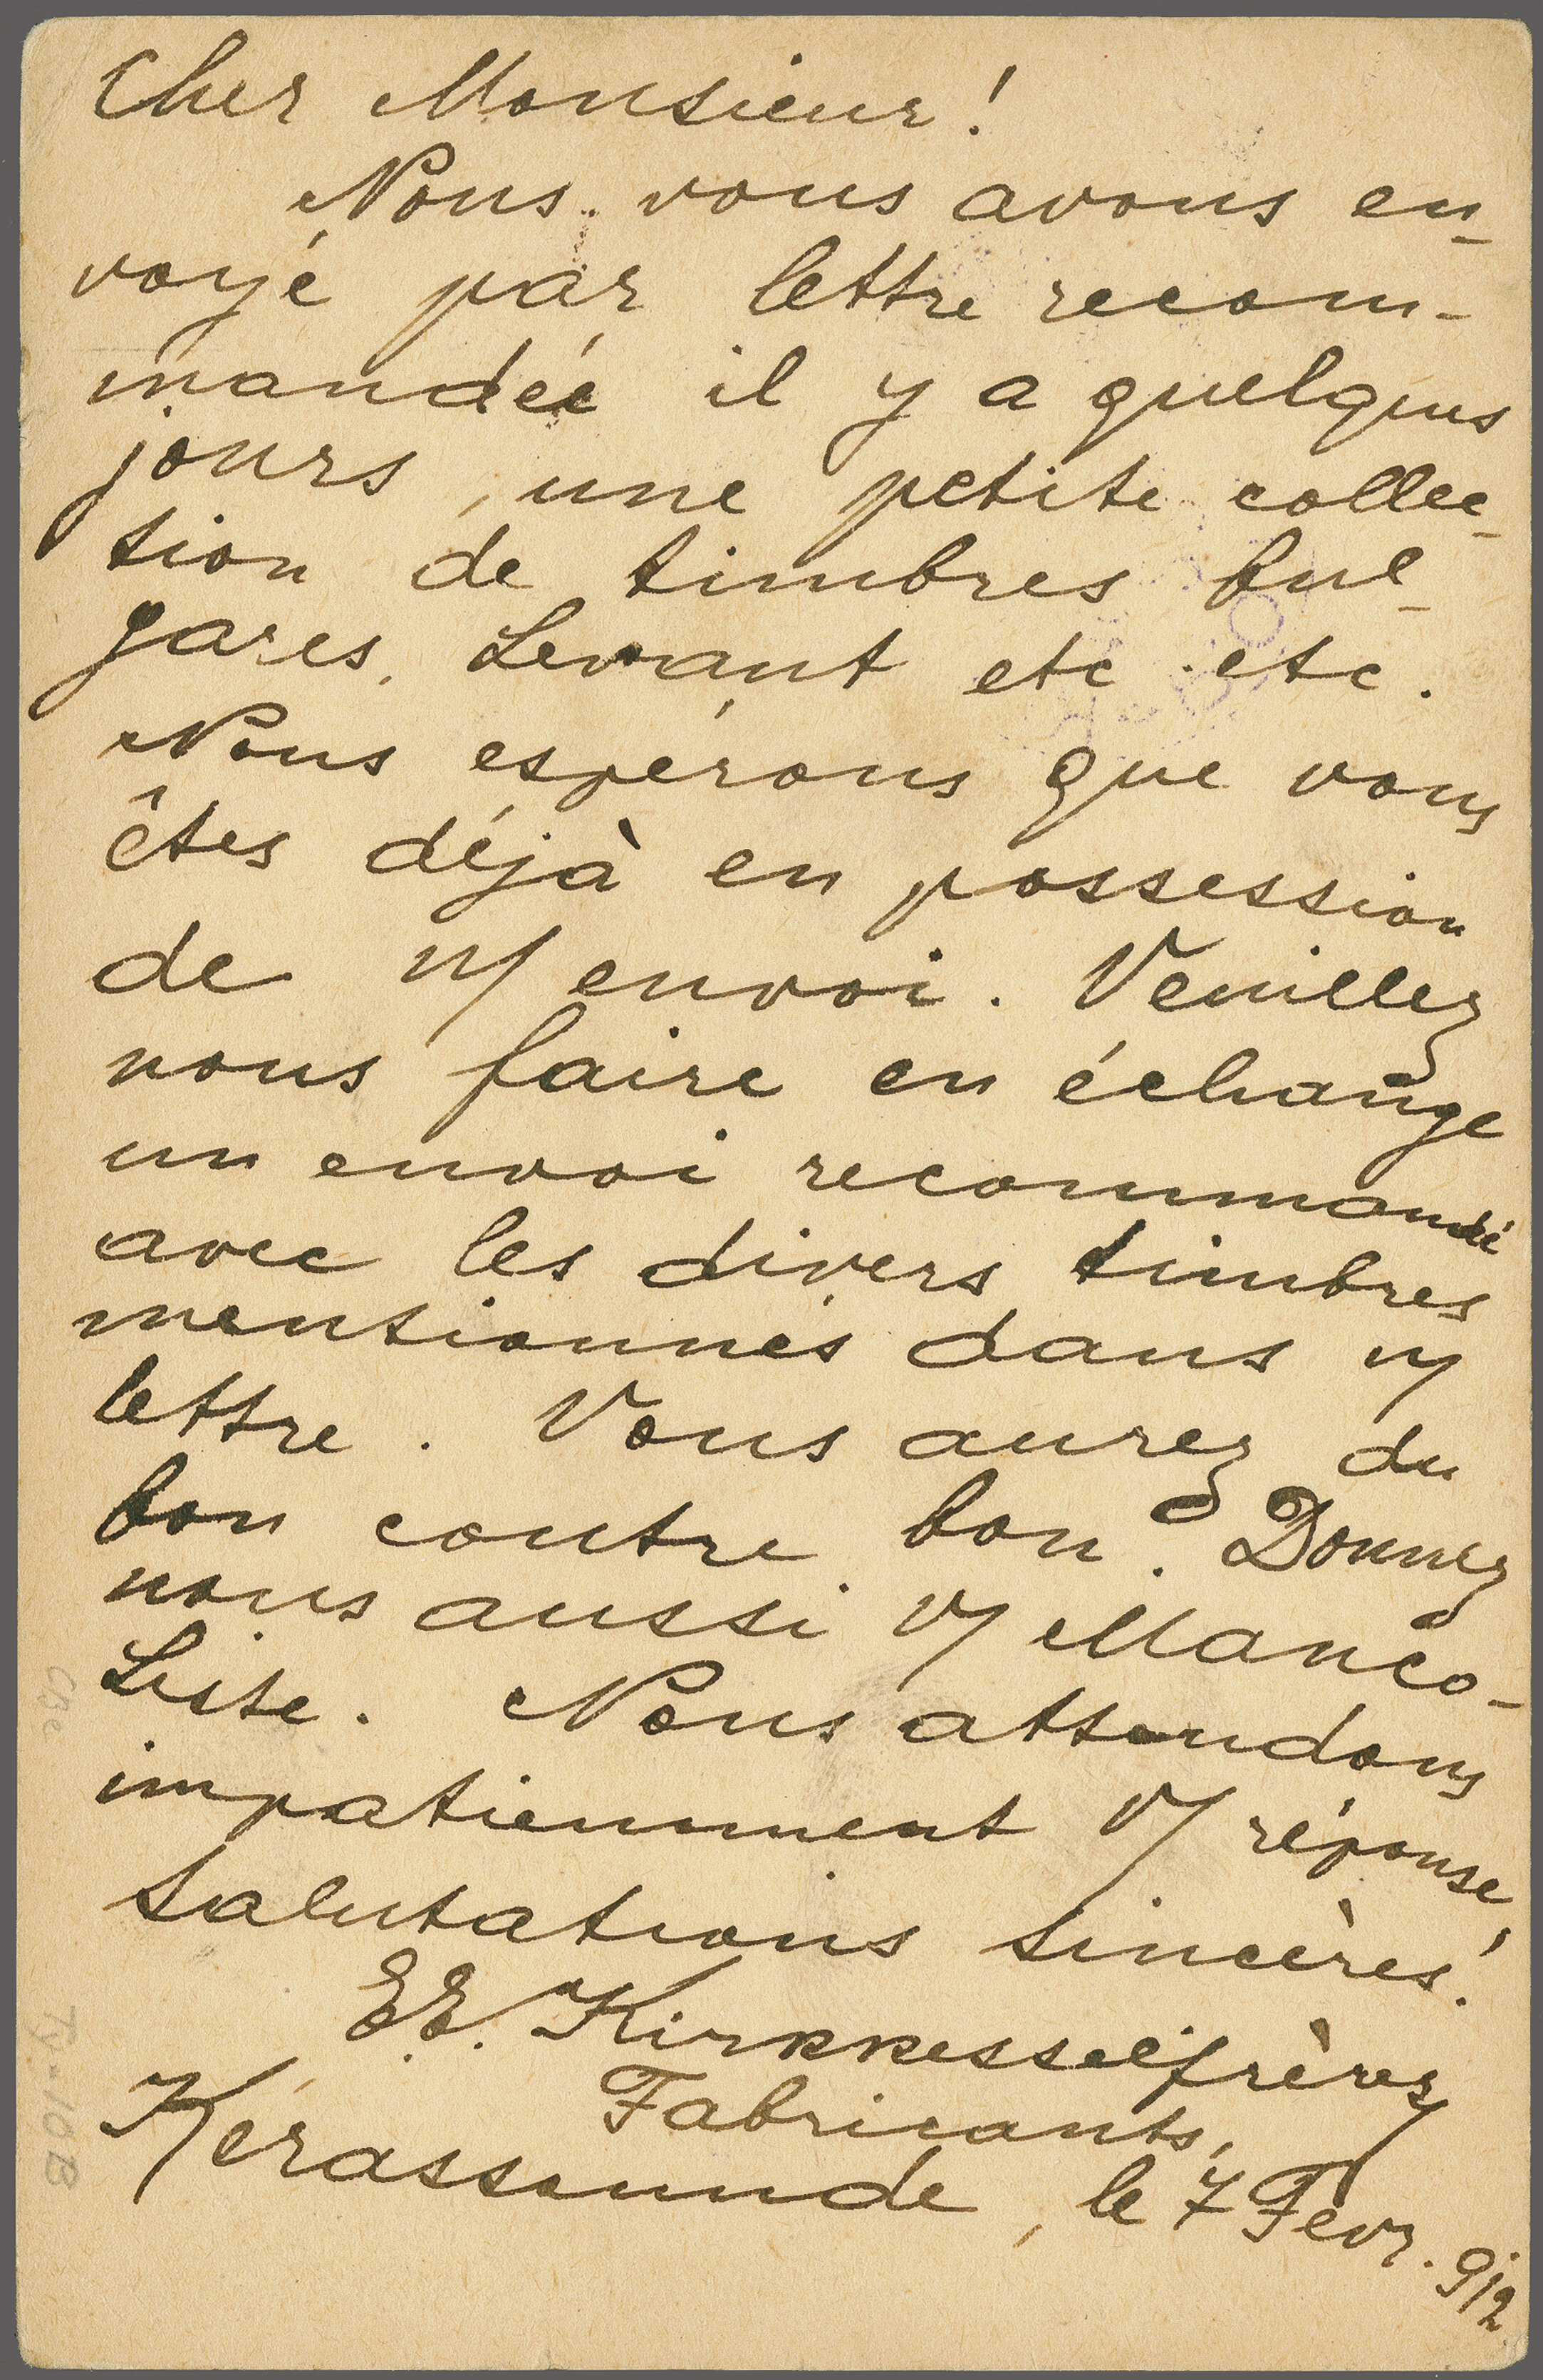 Cher Monsieur!
Nous vous avons en-
voyé par lettre recom-
mandée il y a quelques
jours, une petite collec-
tion de timbres bul-
gares, Levant etc etc.
Nous espérons que vous
êtes déjà en possession
de n/ envoi. Veuillez
nous faire en échange
un envoi recommandé
avec les divers timbres
mentionnés dans n/
lettre. Vous aurez du
bon contre bon. Donnez
nous aussi v/ Manco-
Liste. Nous attendons
impatiemment v/ réponse,
Salutations sincères!
EE. Kirkkesseli frères
Fabricants,
Kérassounde, le 7 Févr. 912
Ty-10B